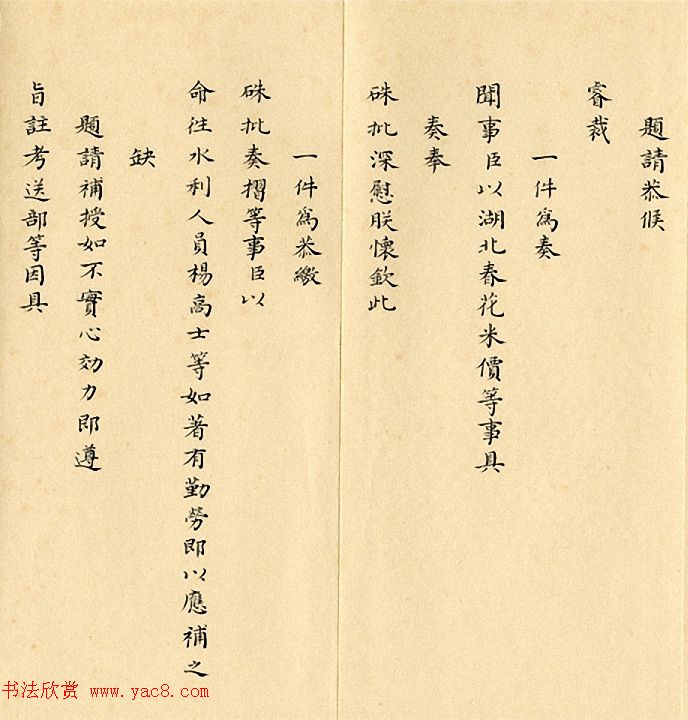 題請恭候
睿裁
一件為奏
聞事臣以湖北春花米價等事具
奏奉
硃批深慰朕懷欽此
一件為恭繳
硃批奏摺等事臣以
命往水利人員楊高士等如著有勤勞即以應補之
缺
題請補授如不實心効力即遵
旨註考送部等因具
书法欣赏 www.yac8.com